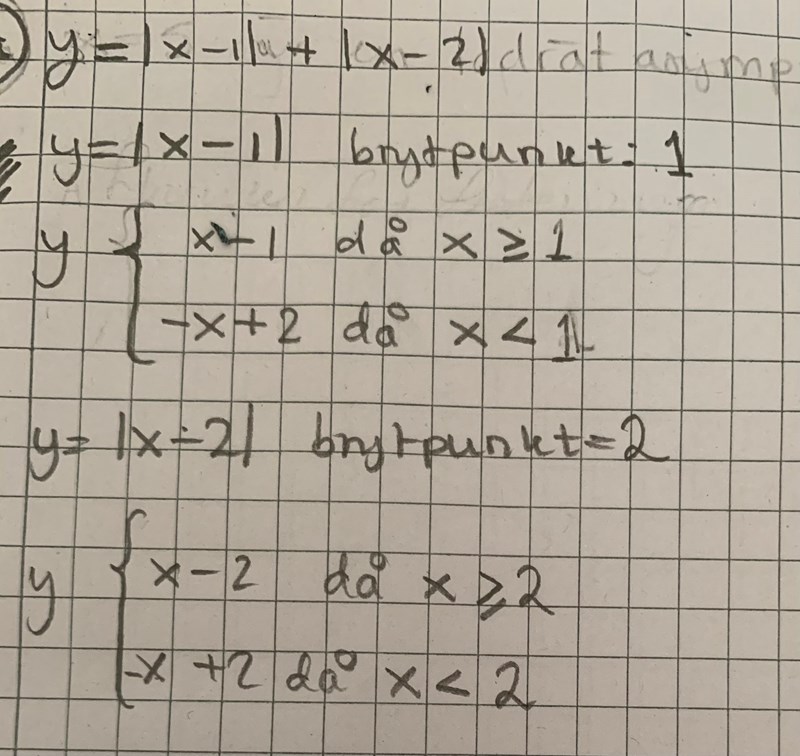 y = |x-1| + |x-2|
y = |x-1| brytpunkt: 1
y { x-1 då x ≥ 1
-x+2 då x < 1
y = |x-2| brytpunkt = 2
y { x-2 då x ≥ 2
-x+2 då x < 2